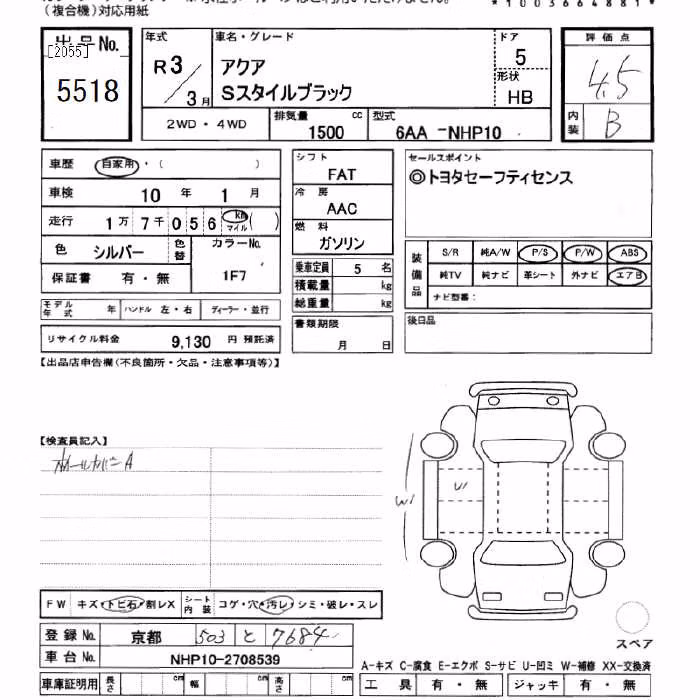 (複合機)対応用紙
*1003664881*
出品No.
[2055]
5518
年式
R3/3月
車名・グレード
アクア
Sスタイルブラック
ドア
5
形状
HB
評価点
4.5
内装
B
2WD・4WD
排気量
1500 cc
型式
6AA -NHP10
車歴 自家用・( )
車検 10年 1月
走行 1万 7千 0 5 6 km マイル ( )
色 シルバー 色替
カラーNo.
1F7
保証書 有・無
モデル年式 年 ハンドル 左・右 ディーラー・並行
リサイクル料金 9,130 円 預託済
シフト
FAT
冷房
AAC
燃料
ガソリン
乗車定員 5 名
積載量 kg
総重量 kg
書類期限
月 日
セールスポイント
◎トヨタセーフティセンス
装備品
S/R 純A/W P/S P/W ABS
純TV 純ナビ 革シート 外ナビ エアB
ナビ型番:
後日品
【出品店申告欄(不良箇所・欠品・注意事項等)】
【検査員記入】
ホールカバーA
W
W
FW キズ・トビ石・割レX シート内装 コゲ・穴・汚レ・シミ・破レ・スレ
登録No. 京都 503 と 7684
車台No. NHP10-2708539
車庫証明用 長さ cm 幅 cm 高さ cm
スペア
A-キズ C-腐食 E-エクボ S-サビ U-凹ミ W-補修 XX-交換済
工具 有・無 ジャッキ 有・無